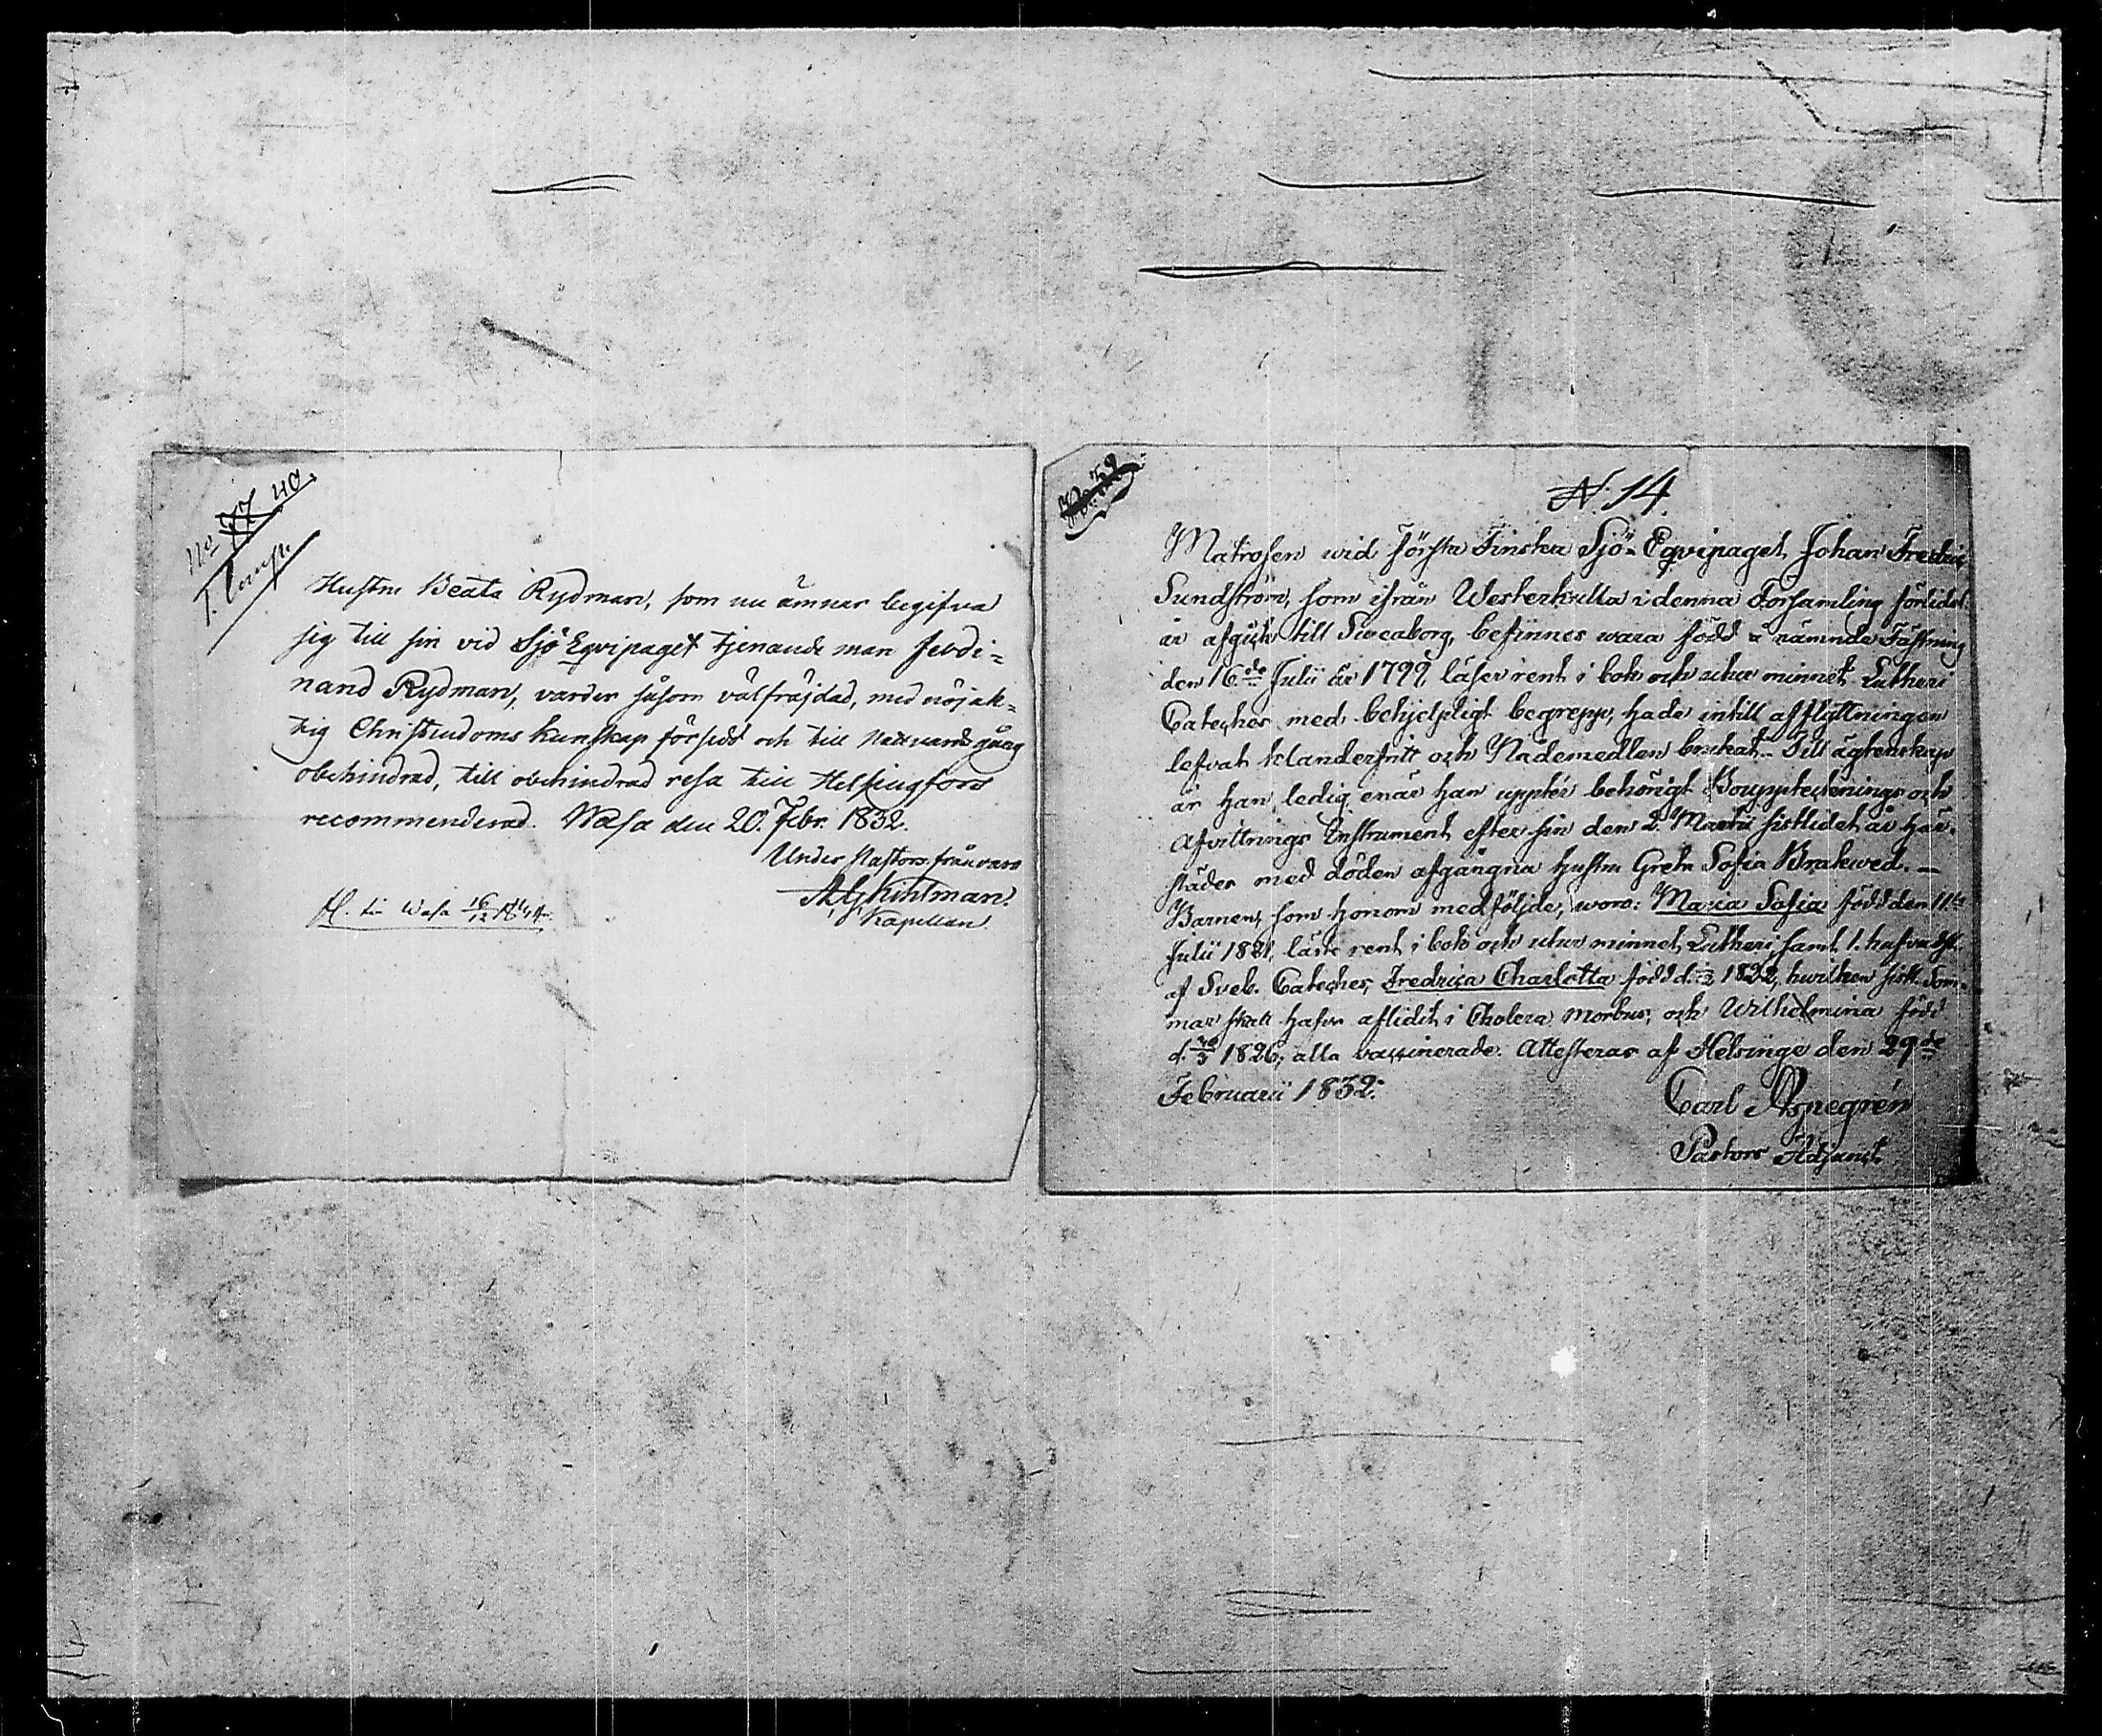 No 77 40.
Hustru Beata Rydman, som nu ämnar begifva
sig till sin vid Sjö Eqvipaget tjenande man Ferdi=
nand Rydman, varder såsom välfräjdad, med nöjak=
tig Christendoms kunskap försedd och till Nattvards gång
obehindrad, till obehindrad resa till Helsingfors
recommenderad. Wasa den 20. Febr. 1832.
Under Pastors frånvaro
A G Kihlman.
Kapellan
fl. till Wasa 16/12 1844
N. 14
Matrosen wid Första Finska Sjö-Eqvipaget Johan Fredric
Sundström, som ifrån Westerkulla i denna Församling förlidet
år afgick till Sweaborg, befinnes wara född å nämnda Fästning
den 16de Julii år 1799, läser rent i bok och utur minnet Lutheri
Cateches med behjelpligt begrepp, hade intill afflyttningen
lefvat klanderfritt och Nådemedlen brukat. Till ägtenskap
är han ledig enär han uppter behörigt Bouppteckenings och
Afvittrings Instrument efter sin den 2. Martii sistlidet år här-
städes med döden afgångna hustru Greta Sofia Brakwed. —
Barnen, som honom medföljde, woro: Maria Sofia född den 11te
Julii 1821, läste rent i bok och utur minnet Lutheri, samt 1. hufvudst.
af Sveb. Cateches, Fredrica Charlotta född d. 1822, hwilken sistl. Som-
mar skall hafva aflidit i Cholera Morbus, och Wilhelmina född
d. 30/3 1826, alla vaccinerade. Attesteras af Helsinge den 29de
Februarii 1832.
Carl Aspegrén
Pastors Adjunct.